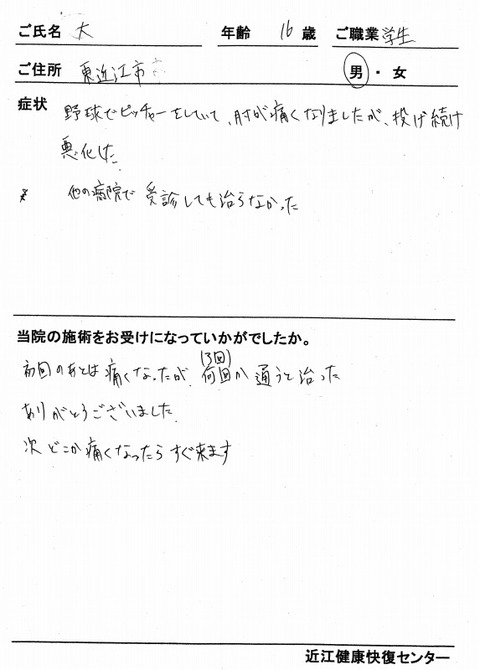 ご氏名 大 年齢 16 歳 ご職業 学生
ご住所 東近江市 男・女
症状 野球でピッチャーをしていて、肘が痛くなりましたが、投げ続け
悪化した
他の病院で受診しても治らなかった
当院の施術をお受けになっていかがでしたか。
(3回)
初回のあとは痛くなったが、何回か通うと治った
ありがとうございました。
次どこか痛くなったらすぐ来ます
近江健康快復センター